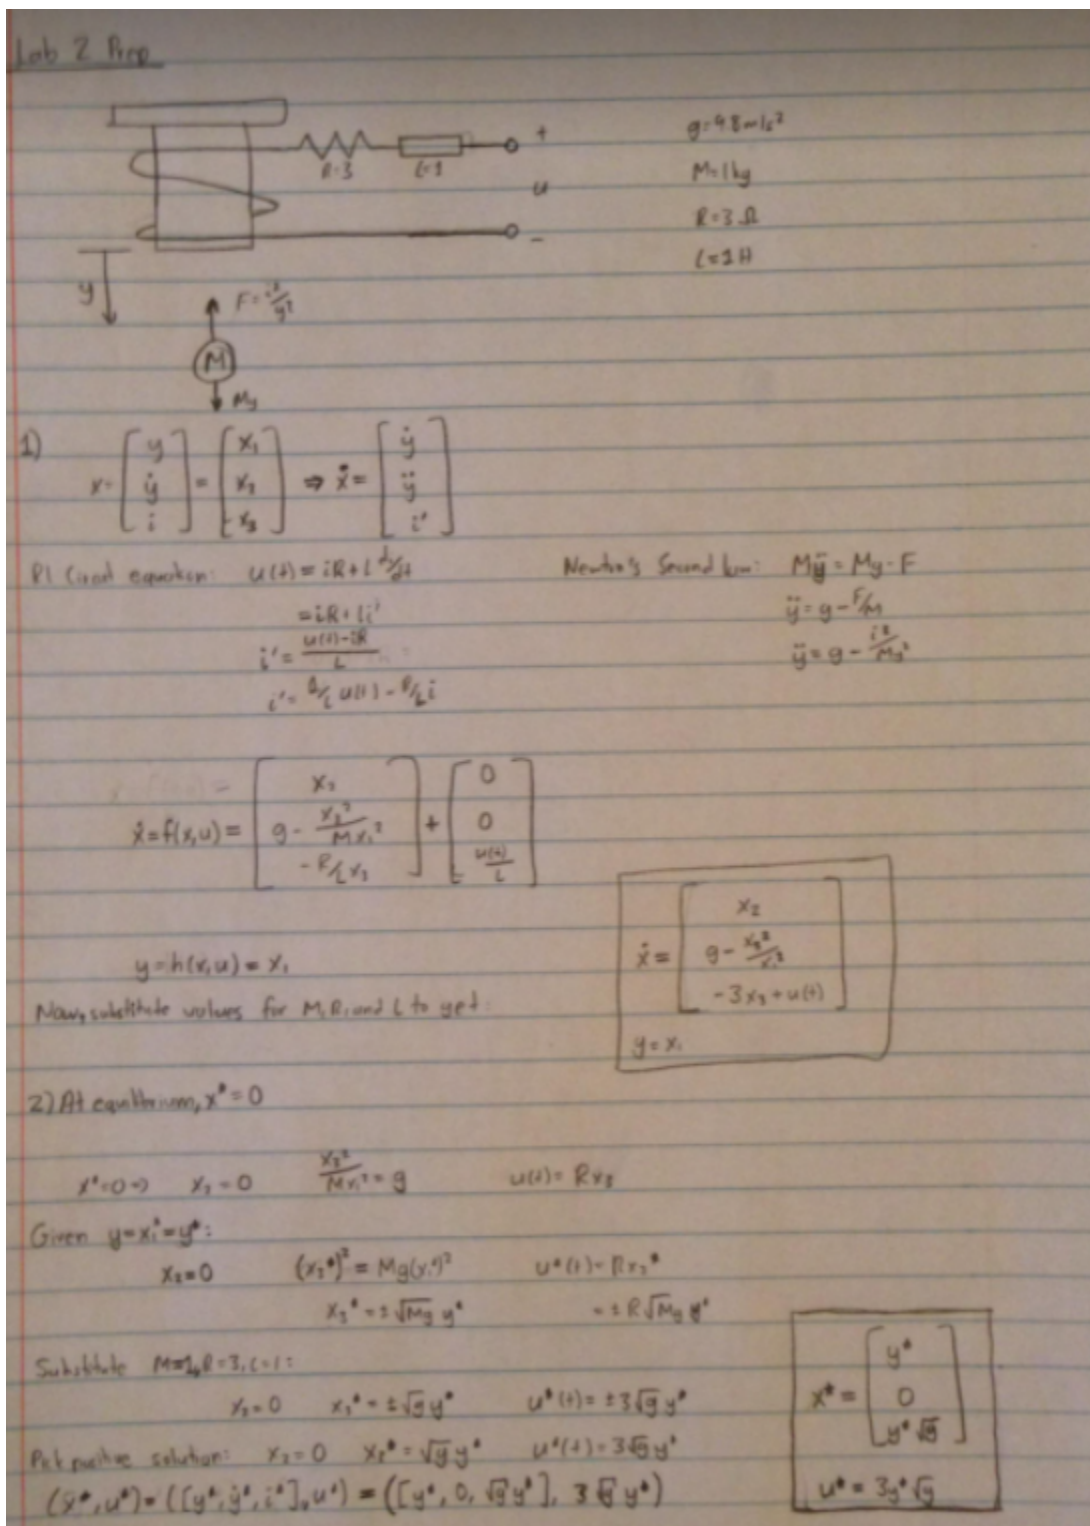 Lab 2 Prep
g=9.8m/s²
M=1kg
R=3 Ω
L=1H
R=3 L=1
+
u
-
y
F=i²/y²
M
Mg
1)
x = [y; ẏ; i] = [x₁; x₂; x₃] ⇒ ẋ = [ẏ; ÿ; i']
Circuit equation: u(t) = iR + L di/dt
= iR + Li'
i' = (u(t)-iR)/L
i' = u(t) - R/L i
Newton's Second law: Mÿ = Mg - F
ÿ = g - F/M
ÿ = g - i²/My²
ẋ = f(x,u) = [x₂; g - x₃²/Mx₁²; -R/L x₃] + [0; 0; u(t)/L]
y = h(x,u) = x₁
Now, substitute values for M, R, and L to get:
ẋ = [x₂; g - x₃²/x₁²; -3x₃ + u(t)]
y = x₁
2) At equilibrium, x* = 0
x* = 0 => x₂ = 0 x₃²/Mx₁² = g u(t) = Rx₃
Given y = x₁* = y*:
x₂ = 0 (x₃*)² = Mg(x₁*)² u*(t) = Rx₃*
x₃* = ±√Mg y* = ±R√Mg y*
Substitute M=1, R=3, L=1:
x₂ = 0 x₃* = ±√g y* u*(t) = ±3√g y*
Pick positive solution: x₂ = 0 x₃* = √g y* u*(t) = 3√g y*
(x*, u*) = ([y*, ẏ*, i*], u*) = ([y*, 0, √g y*], 3√g y*)
x* = [y*; 0; y*√g]
u* = 3y*√g